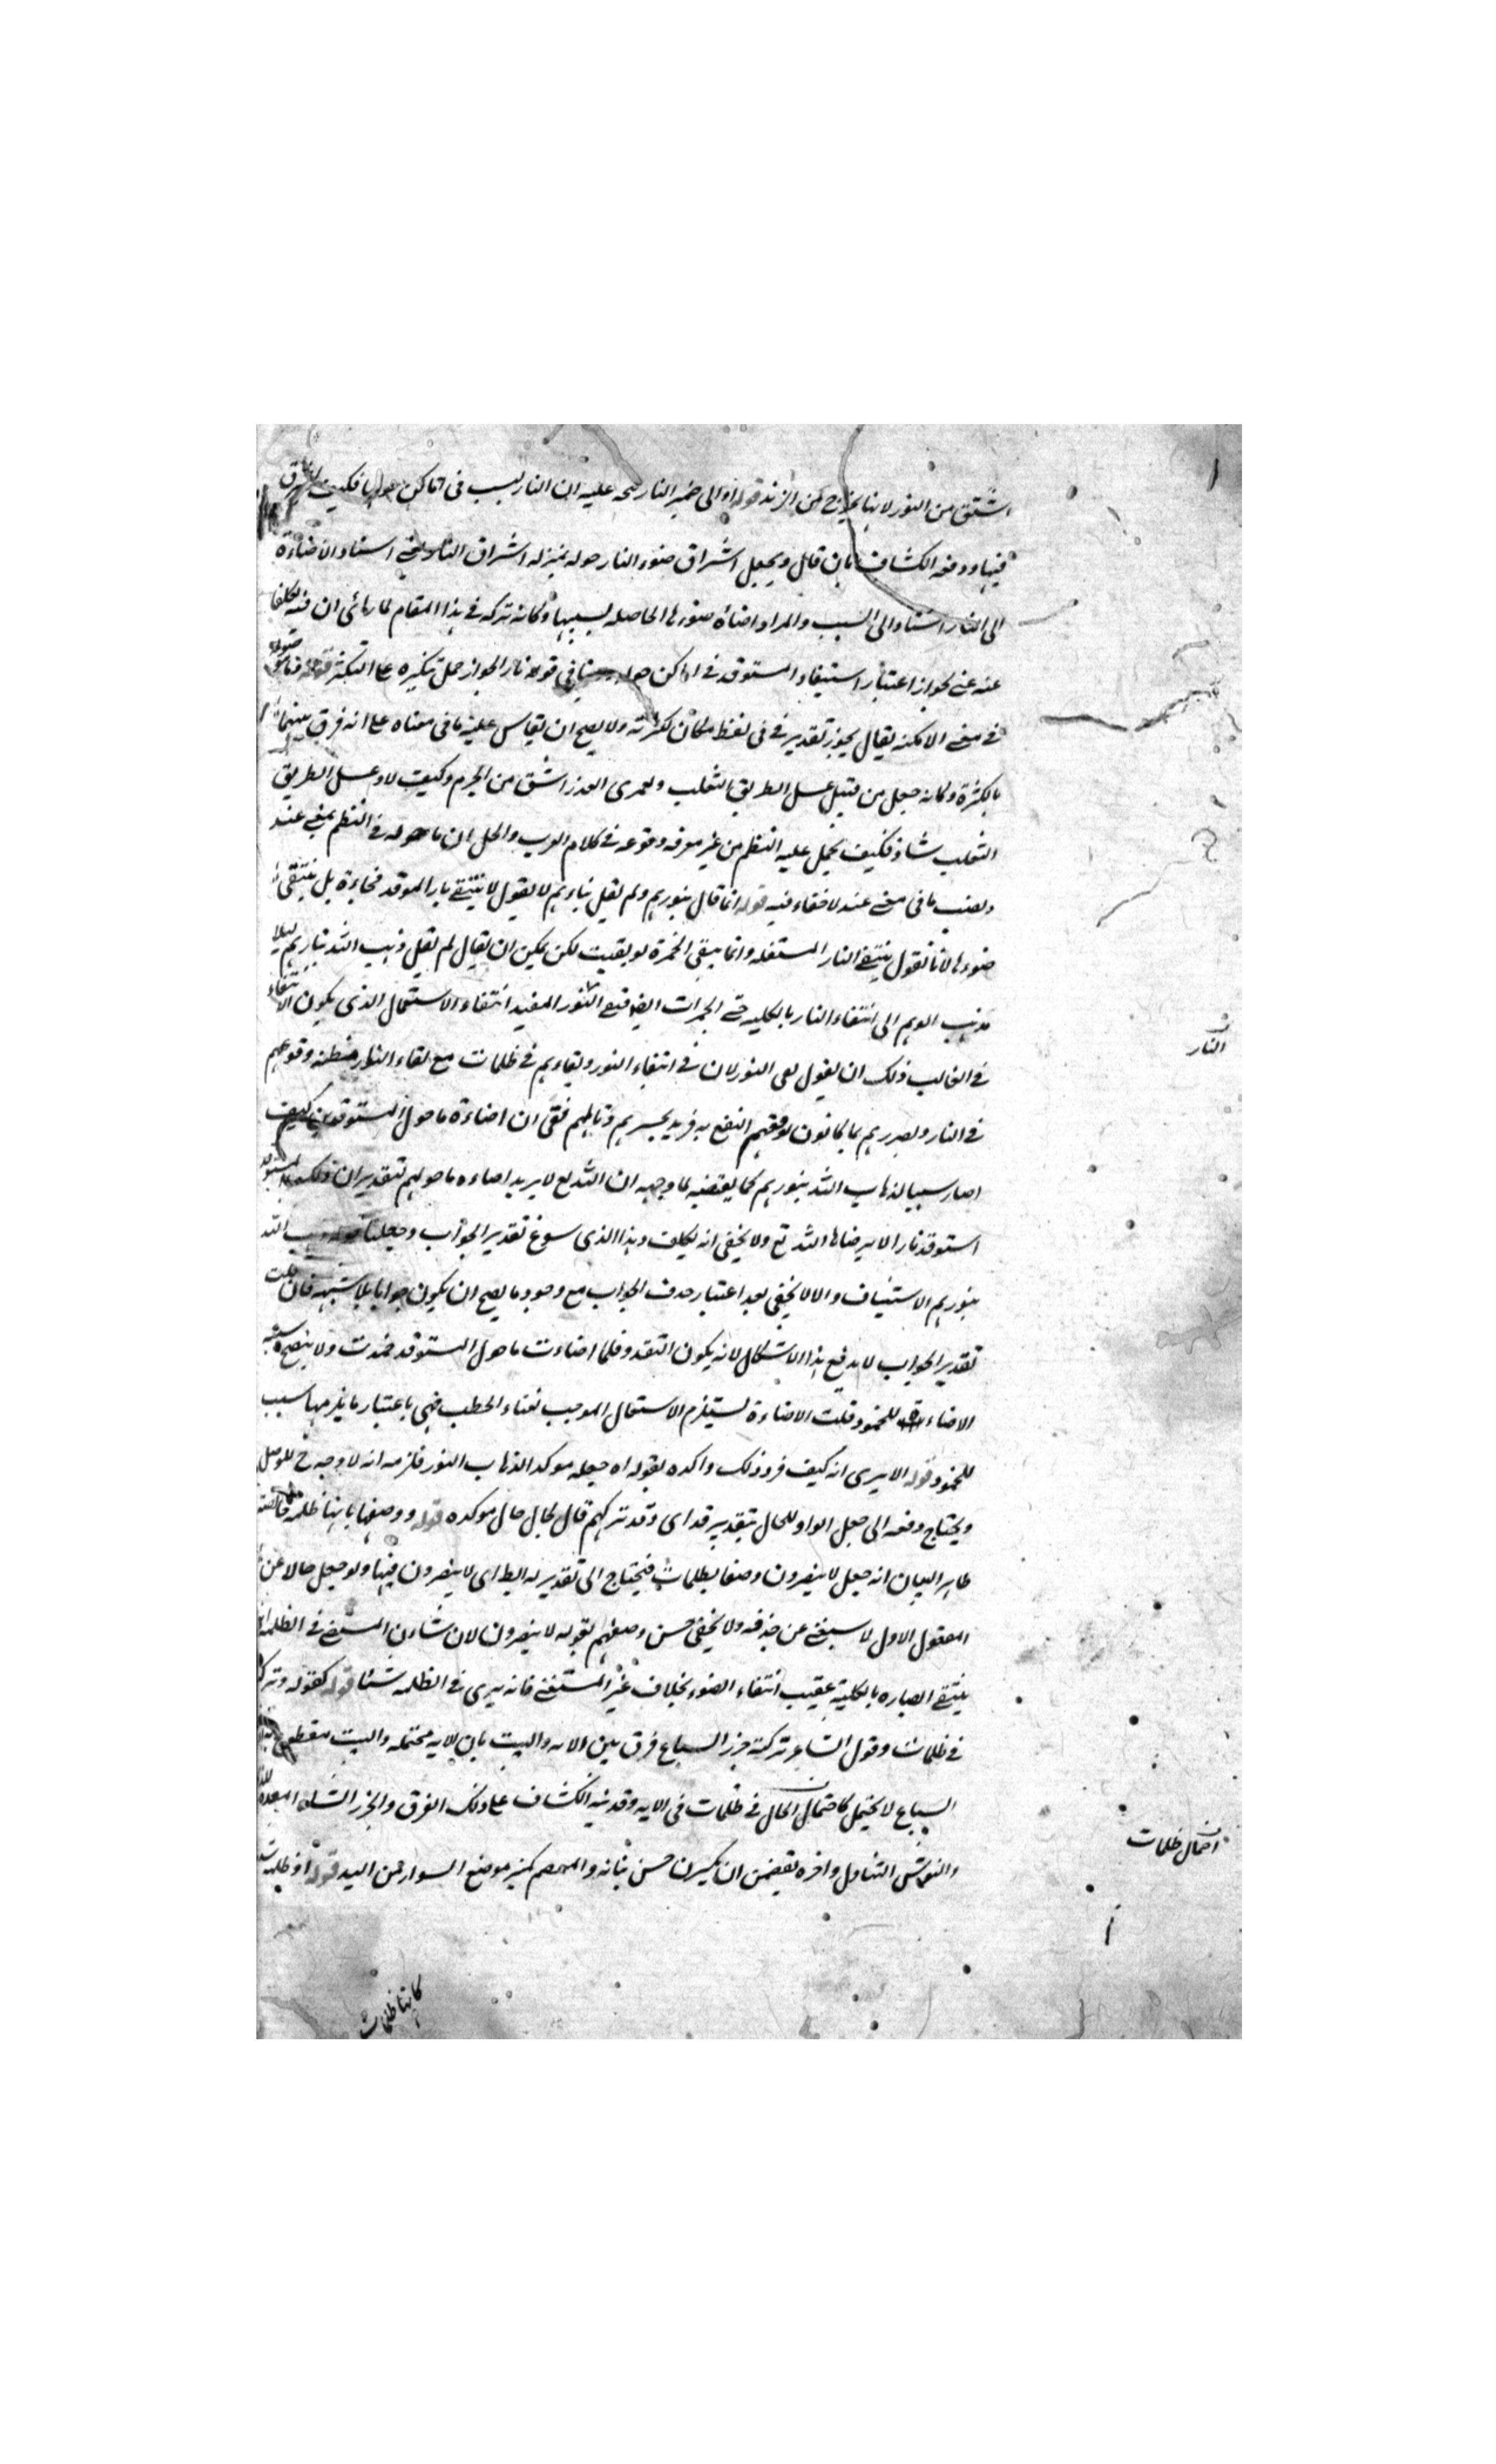 اشتق من النور لانها تخرج من الزند قوله او الى ضمير النار يتجه عليه ان النار ليست في اماكن حولها فكيف تشرق
فيها ودفعه الكشاف بان قال ويجعل اشراق ضوء النار حوله بمنزله اشراق النار يعني اسناد الاضاءة
الى النار اسناد الى السبب والمراد اضاءة ضوءها الحاصله بسببها وكانه تركه في هذا المقام لما رأى ان فيه تكلفا
عنه غنى لجواز اعتبار استيقاد المستوقد في اماكن حوله ينافي قوله نارا لجواز حمل تنكيره على التكثير قوله
في معنى الامكنه يقال يجوز تقدير في في لفظ مكان لكثرته ولا يصح ان يقاس عليه ما في معناه على انه فرق بينهما
بالكثرة وكانه جعل من قبيل عسل الطريق الثعلب ولعمري العذر اشق من الجرم وكيف لا وعسل الطريق
الثعلب شاذ فكيف يحمل عليه النظم من غير معرفه وقوعه في كلام العرب والحل ان ما حوله في النظم بمعنى عند
ونصب ما في معنى عند لا خفاء فيه قوله انما قال بنورهم ولم يقل بنارهم لا يقول لا ينتفي نار الموقد فجاءة بل ينتفي
ضوءها لانا نقول ينتفي النار المشتعله وانما يبقى الجمرة لو بقيت لكن يمكن ان يقال لم يقل ذهب الله بنارهم لئلا
يذهب الوهم الى انتفاء النار بالكليه حتى الجمرات ايضا النور المفيد انتفاء الاشتعال الذي يكون الانتفاء
في الغالب ذلك ان يقول نفى النور لان في انتفاء النور وبقاءهم في ظلمات مع بقاء النار مظنه وقوعهم
في النار وتضررهم بما كانوا توقعهم النفع به فزيد تحسرهم وتألمهم بقى ان اضاءة ما حول المستوقد كيف
صار سببا لذهاب الله بنورهم كما يقتضيه لما وجهه ان الله تع لا يريد اضاءه ما حولهم بتقدير ان ذلك المستوقد
استوقد نارا لا يرضاها الله تع ولا يخفى انه تكلف وهذا الذي سوغ تقدير الجواب وجعل ذهب الله
بنورهم الاستيناف والا لا يخفى بعد اعتبار حذف الجواب مع وجود ما يصح ان يكون جوابا بلا شبهه فان قلت
تقدير الجواب لا يدفع هذا الاشكال لانه يكون التقدير فلما اضاءت ما حول المستوقد خمدت ولا يتضح سببيه
الاضاءة للخمود قلت الاضاءة تستلزم الاشتعال الموجب لفناء الحطب فهي باعتبار ما يلزمها سبب
للخمود قوله الا يرى انه كيف قرر ذلك واكده بقوله اه جعله موكدا لذهاب النور فلزمه انه لا وجه ح للوصل
ويحتاج دفعه الى جعل الواو للحال بتقدير قد اي وقد تركهم قال لحال حال موكده قوله ووصفها بانها ظلمه خالصه
ظاهر البيان انه جعل لا يبصرون وصفا لظلمات فيحتاج الى تقدير له الربط اي لا يبصرون فيها ولو جعل حالا عن
المفعول الاول لاستغنى عن حذفه ولا يخفى حسن وصفهم بقوله لا يبصرون لان شان المستضئ في الظلمه ان
ينتفي ابصاره بالكليه عقيب انتفاء الضوء بخلاف غير المستضئ فانه يرى في الظلمه شئا قوله كقوله وتركهم
في ظلمات وقول الشاعر تركته جزر السباع فرق بين الايه والبيت بان الايه محتمله والبيت مقطوع
السباع لا يحتمل كاحتمال الحال في ظلمات في الايه وقد نبه الكشاف على ذلك الفرق والجزر الشاة المعدة للذبح
والنوش التناول واخره يقضمن ان يكسرن حسن بنانه والمعصم كمنبر موضع السوار من اليد قوله او ظلمه شديدة
النار
احتمال ظلمات
كانها ظلمات